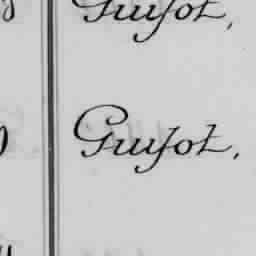 Guyot,
Guyot,